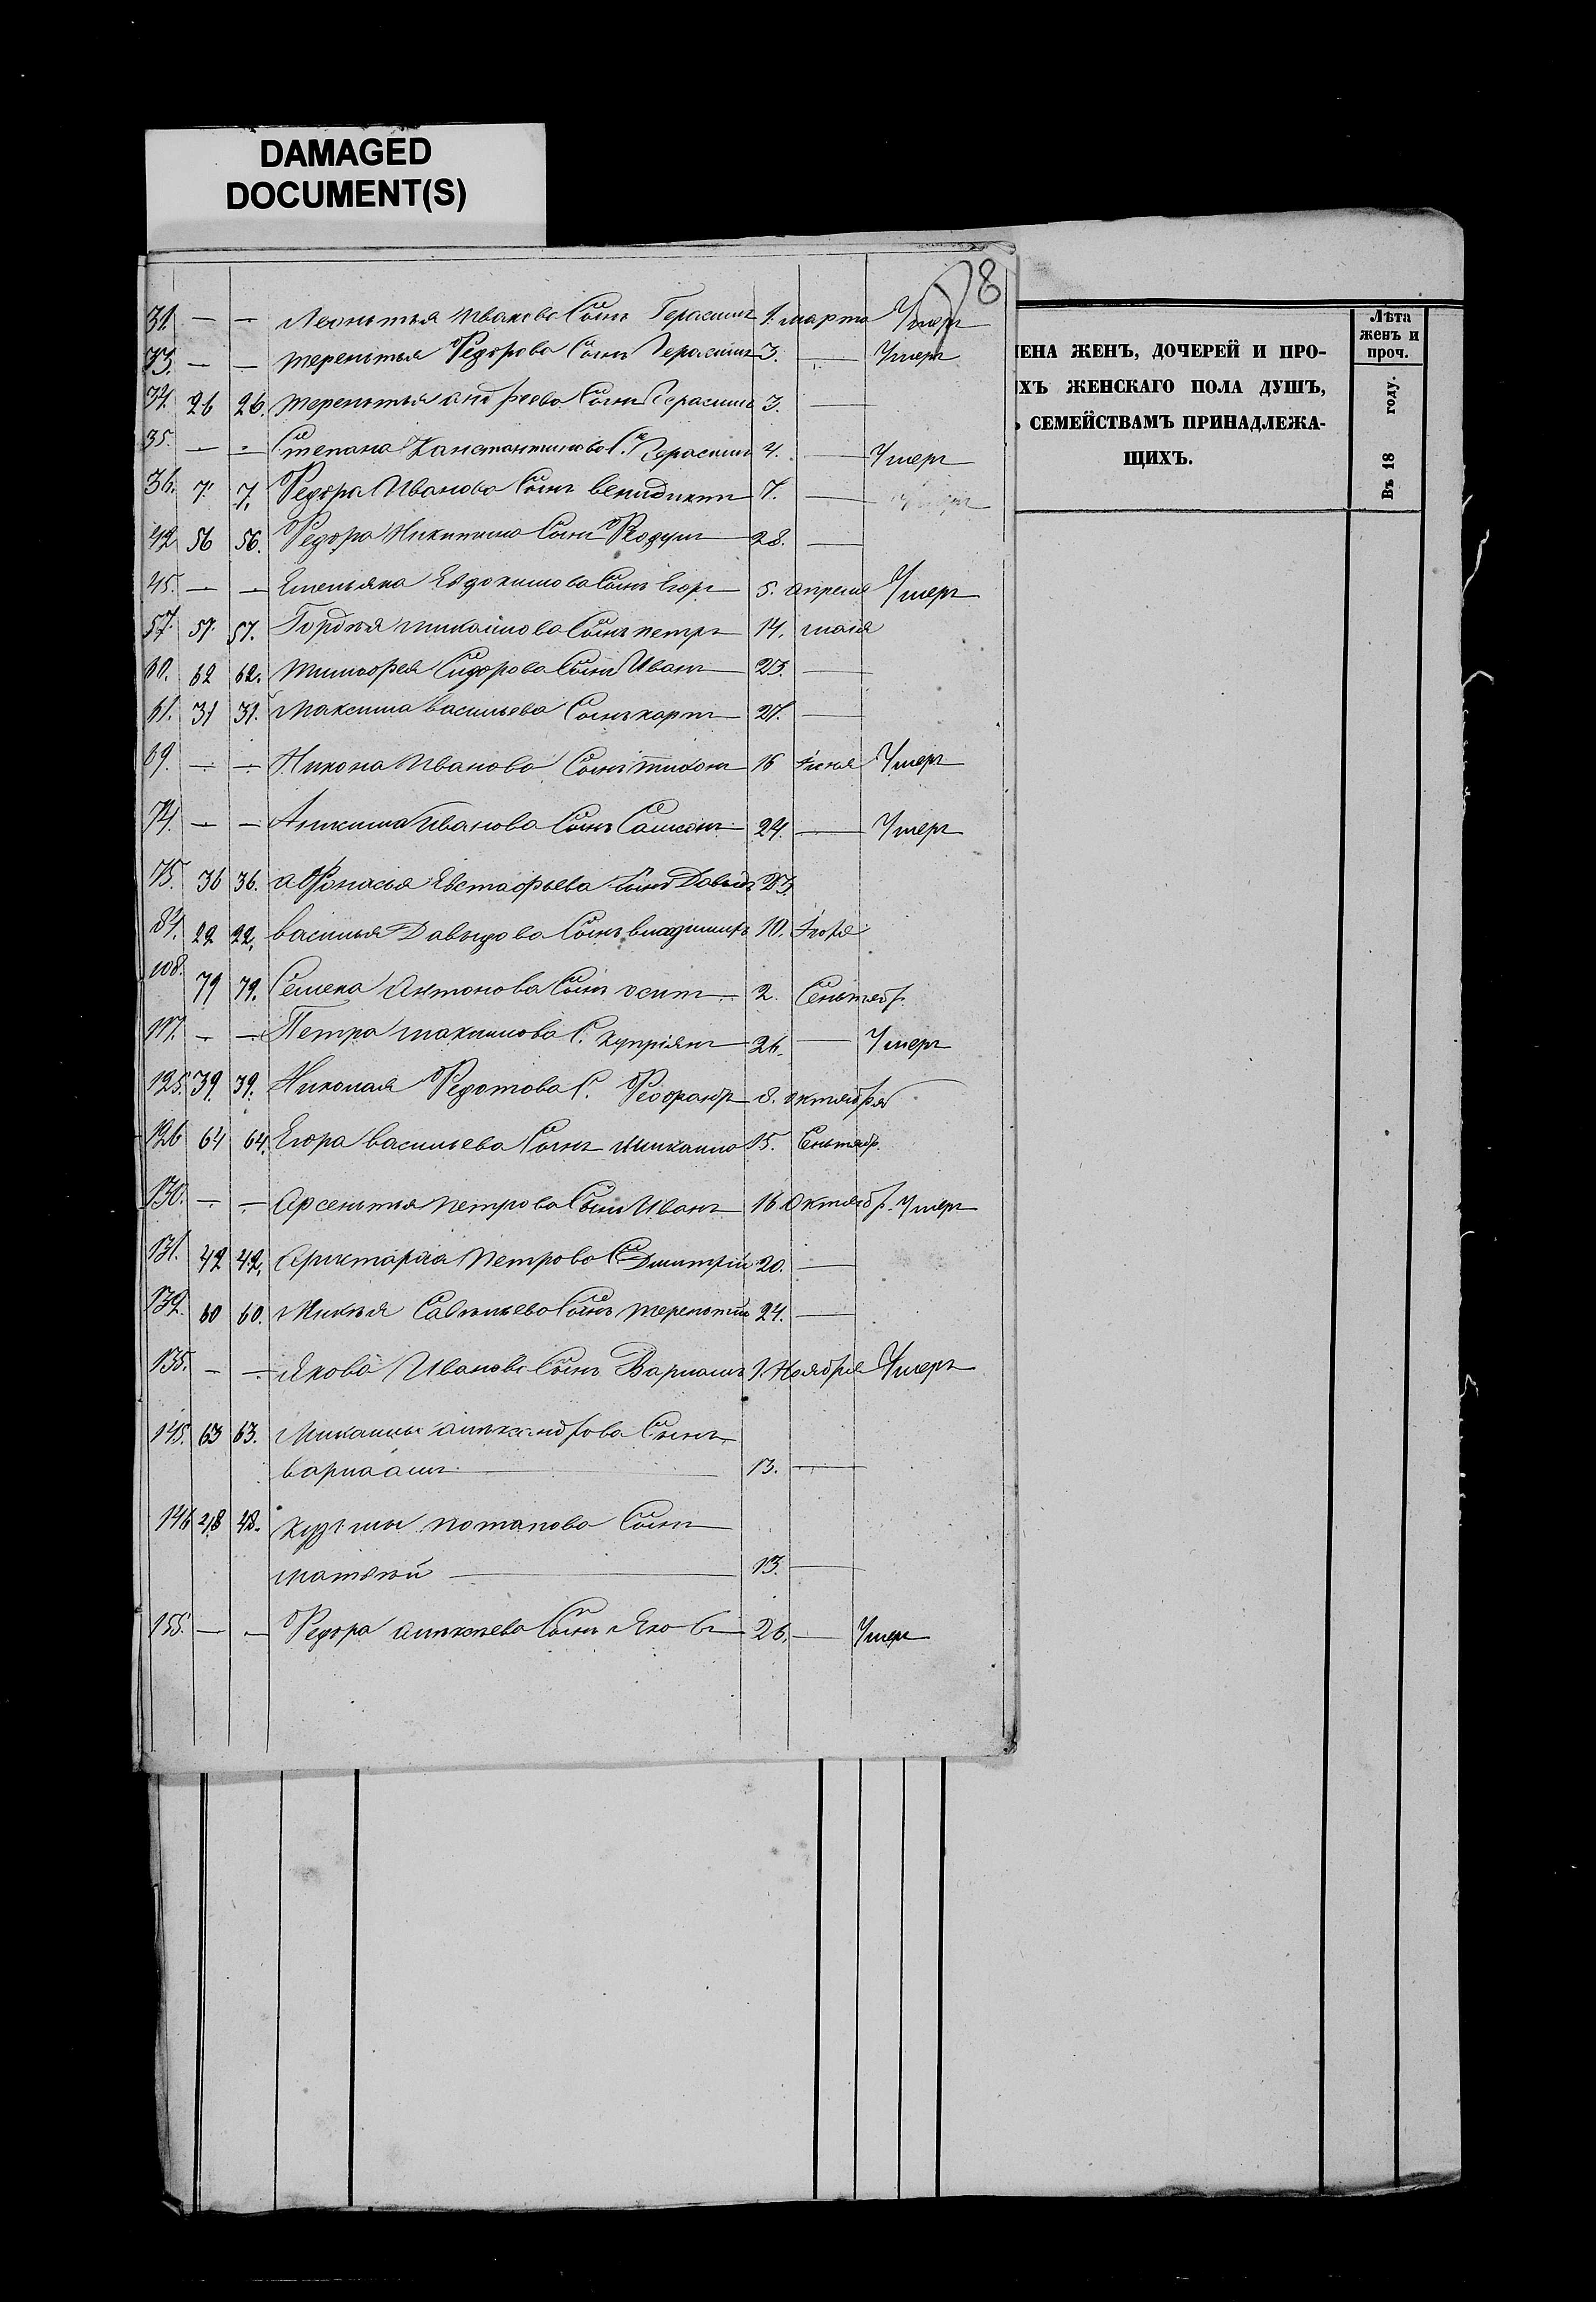 DAMAGED
DOCUMENT(S)
8
31. — — Леонтья Иванова Сынъ Герасимъ 1. марта Умеръ
33. — — терентья Федорова Сынъ Герасимъ 3. — Умеръ
34. 26 26. терентья андреева Сынъ Герасимъ 3. —
35. — — Степана Канстантинова С. Герасимъ 4. — Умеръ
36. 7. 7. Федора Иванова Сынъ венидиктъ 7. — Умеръ
42 56 56. Федора Никитина Сынъ Федулъ 28. —
45. — — Емельяна Евдокимова Сынъ Егоръ 5. апреля Умеръ
57. 57. 57. Гордѣя михайлова Сынъ петръ 14. маія
60. 62 62. тимофея Сидорова Сынъ Иванъ 23. —
61. 31 31. Максима васильева Сынъ карпъ 27. —
69. — — Никона Иванова Сынъ тихонъ 16 Іюня Умеръ
74. — — Аникима Иванова Сынъ Самсонъ 24. — Умеръ
75. 36 36. афонасья Евстафьева Сынъ Давыдъ 25.
84. 22 22. василья Давыдова Сынъ владимиръ 10. Іюля
108. 79 79. Семена Антонова Сынъ осипъ 2. Сентябр.
117. — — Петра максимова С. купріянъ 26. — Умеръ
125. 39 39. Николая Федотова С. 8. октября
126 64 64. Егора васильева Сынъ михаило 15. Сентябр.
130. — — Арсентья петрова Сынъ Иванъ 16 Октябр. Умеръ
131. 42 42. Аристарха Петрова С. Дмитрій 20. —
132. 60 60. Макѣя Савельева Сынъ терентій 24. —
135. — — Якова Иванова Сынъ Варламъ 1. Ноября Умеръ
145. 63 63. Михаилы александрова Сынъ
варлаамъ — 13. —
146 48 48. кузьмы потапова Сынъ
матвѣй — 13. —
155. — — Федора алексѣева Сынъ Яковъ 26. — Умеръ
ЕНА ЖЕНЪ, ДОЧЕРЕЙ И ПРО-
ХЪ ЖЕНСКАГО ПОЛА ДУШЪ,
СЕМЕЙСТВАМЪ ПРИНАДЛЕЖА-
ЩИХЪ.
Лѣта
женъ и
проч.
Въ 18 году.